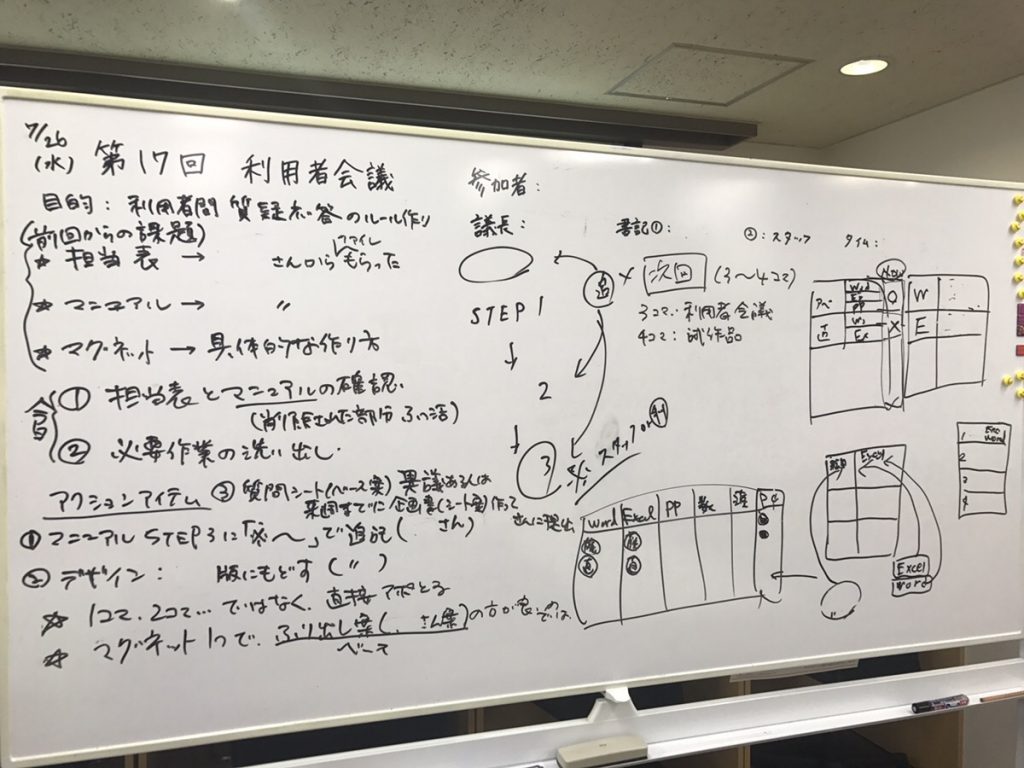 7/26
(水) 第17回 利用者会議
目的: 利用者間 質疑応答のルール作り
(前回からの課題)
★ 担当表 → さんから もらった
ファイル
★ マニュアル → 〃
★ マグネット → 具体的な作り方
① 担当表とマニュアルの確認.
(削除した部分 ふっ活)
② 必要作業の洗い出し.
アクションアイテム
③ 質問シート(ベース案) 異議あるんは
来週までに企画書(シート案)作って
さんに提出
① マニュアル STEP3に「※〜」で追記( さん)
② デザイン: 版にもどす (〃)
☆ 1コマ、2コマ… ではなく、直接アポとる
☆ マグネット1つで、ふり出し案( さん案)の方が良いでは
べーて
参加者:
議長:
書記①:
②: スタッフ
タイム:
STEP 1
↓
2
↓
3
※ スタッフor
次回 (3〜4コマ)
3コマ: 利用者会議
4コマ: 試作品
Now
Word
PP
Ex
O
X
W
E
Word Excel PP
Excel
Excel
Word
1
2
3
4